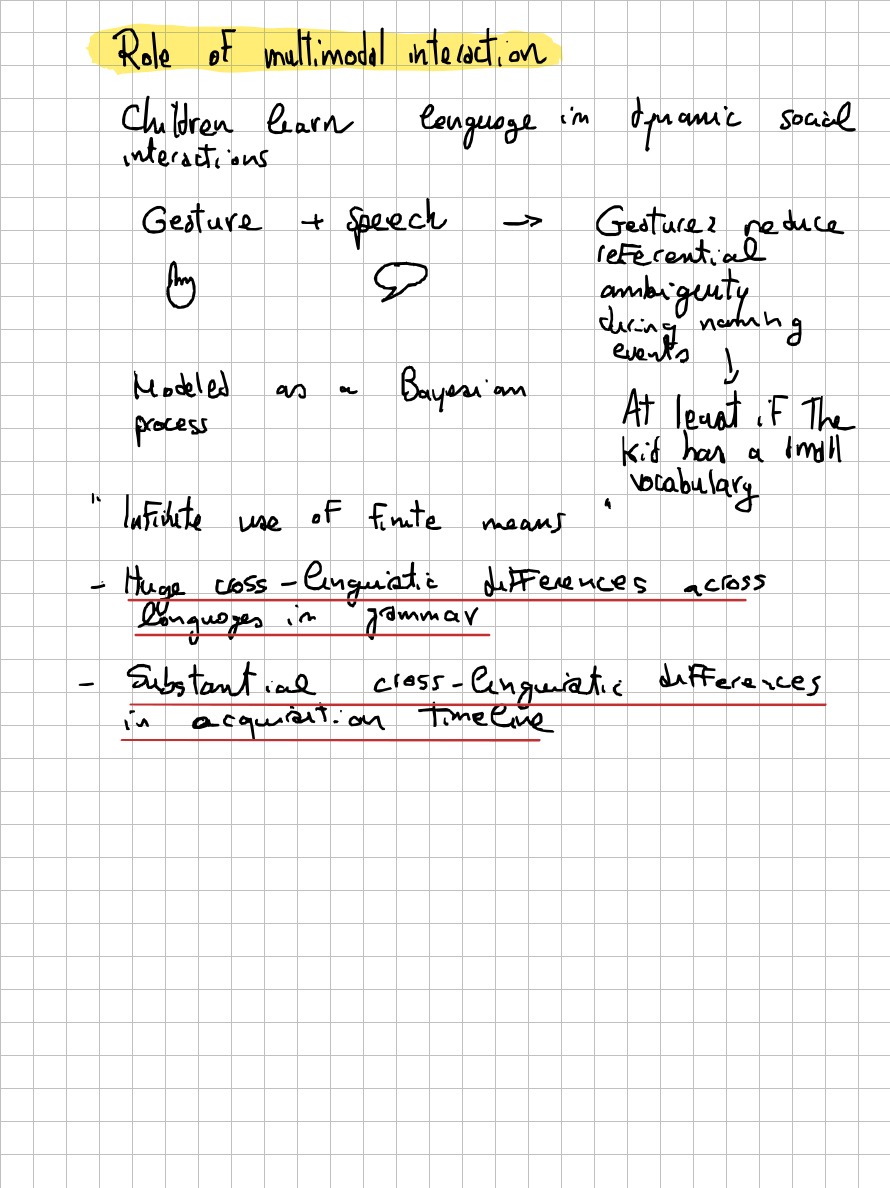 Role of multimodal interaction
Children learn language in dynamic social
interactions
Gesture + Speech → Gestures reduce
referential
ambiguity
during naming
events
↓
At least if The
kid has a small
vocabulary
Modeled as a Bayesian
process
" Infinite use of finite means "
- Huge cross-linguistic differences across
languages in grammar
- Substantial cross-linguistic differences
in acquisition Timeline